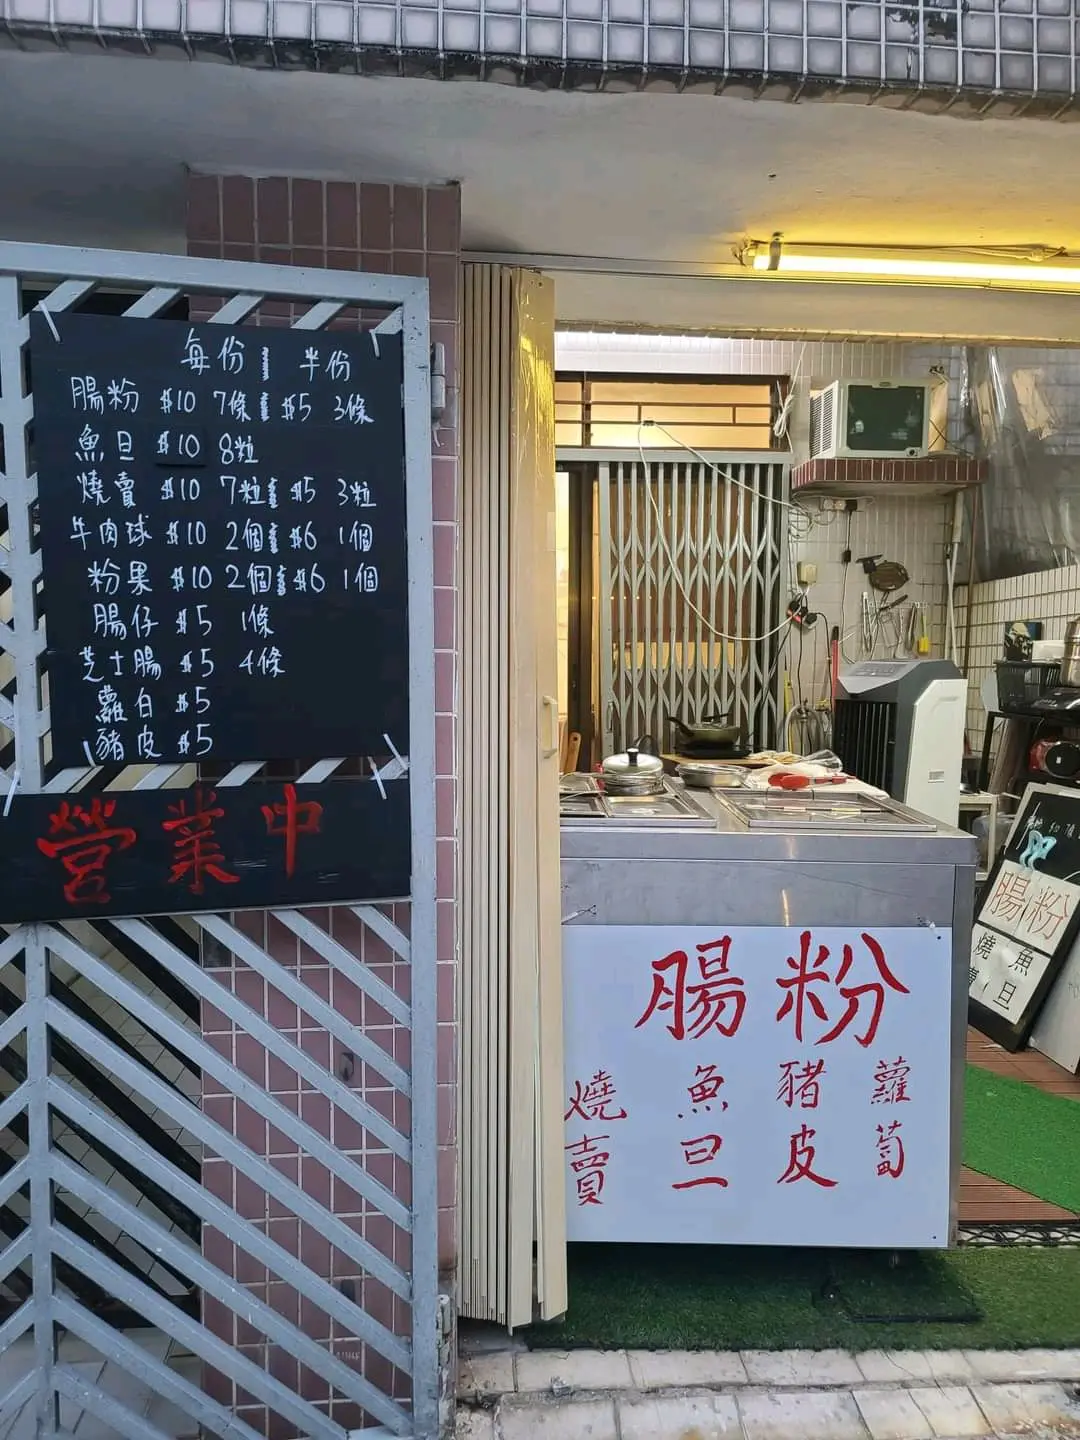 每份 半份
腸粉 $10 7條 $5 3條
魚旦 $10 8粒
燒賣 $10 7粒 $5 3粒
牛肉球 $10 2個 $6 1個
粉果 $10 2個 $6 1個
腸仔 $5 1條
芝士腸 $5 4條
蘿白 $5
豬皮 $5
營業中
腸粉
燒賣
魚旦
豬皮
蘿蔔
腸粉
燒賣
魚旦